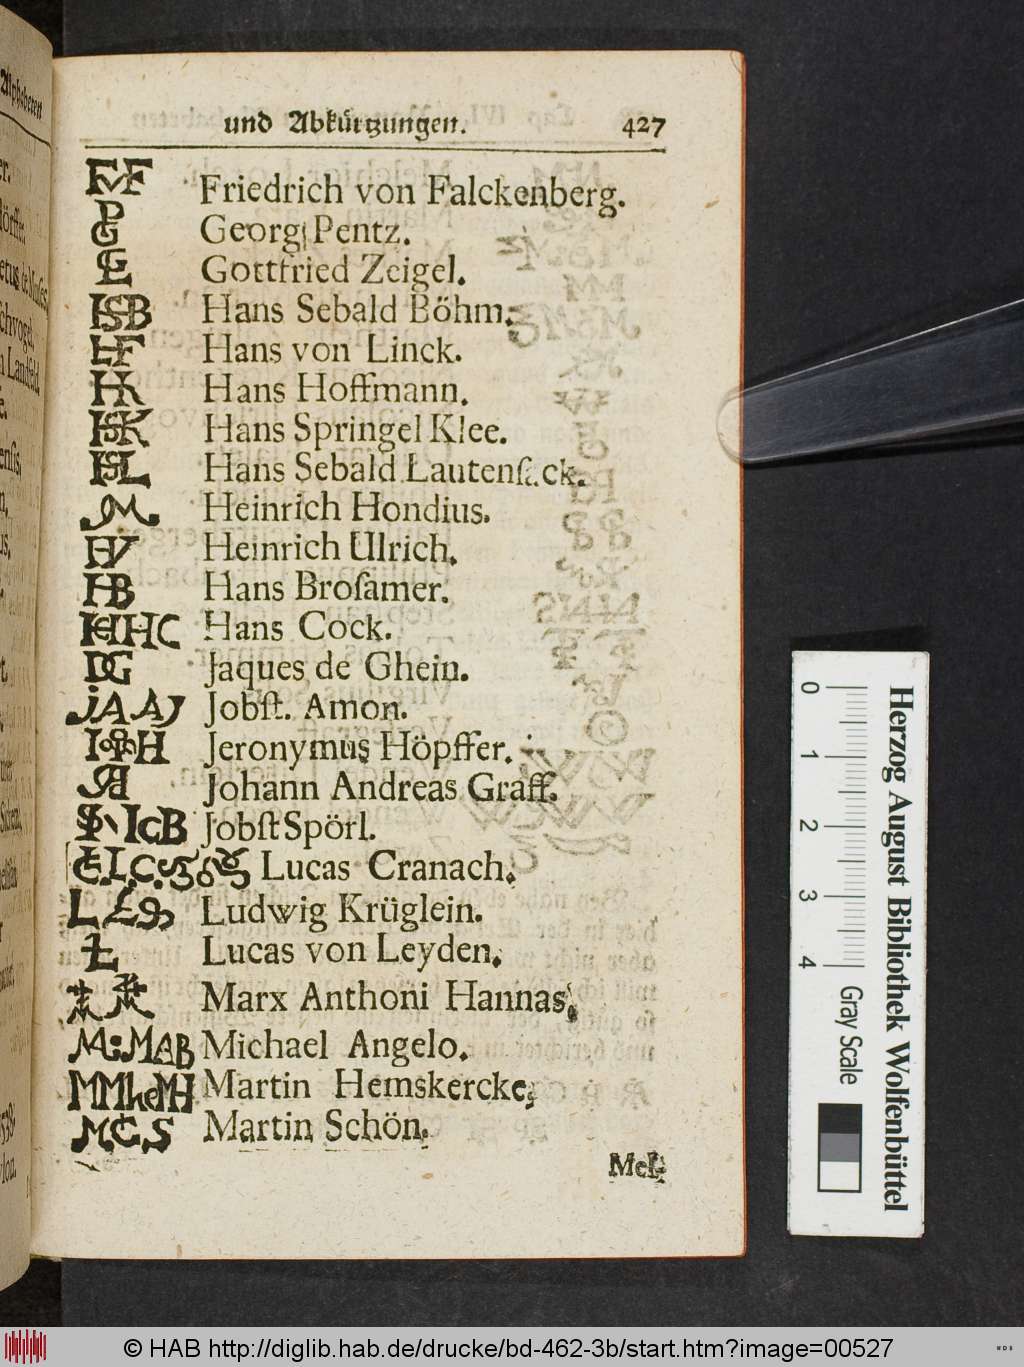 und Abkürtzungen. 427
FvF Friedrich von Falckenberg.
Georg Pentz.
Gottfried Zeigel.
HSB Hans Sebald Böhm.
Hans von Linck.
Hans Hoffmann.
HSK Hans Springel Klee.
HSL Hans Sebald Lautensack.
Heinrich Hondius.
HV Heinrich Ulrich.
HB Hans Brosamer.
Hans Cock.
DG Jaques de Ghein.
jAAJ Jobst. Amon.
Jeronymus Höpffer.
Johann Andreas Graff.
IcB Jobst Spörl.
Lucas Cranach.
Ludwig Krüglein.
L Lucas von Leyden.
Marx Anthoni Hannas.
M:MAB Michael Angelo.
Martin Hemskercke,
M.C.S Martin Schön.
Mel-
Alphabeten
0 1 2 3 4
Gray Scale
Herzog August Bibliothek Wolfenbüttel
© HAB http://diglib.hab.de/drucke/bd-462-3b/start.htm?image=00527